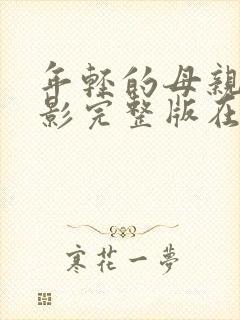 年轻的母亲
影完整版在
寒花一梦